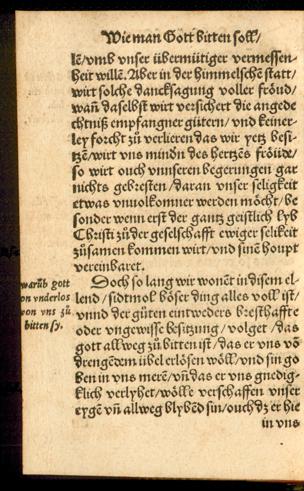 Wie man Gott bitten soll/
lẽ/vmb vnser übermütiger vermessen-
heit willẽ. Aber in der himmelschẽ statt/
wirt solche dancksagung voller fröud/
wañ daselbst wirt versichert die angede
chtniß empfangner gütern/vnd keiner-
ley forcht zů verlieren das wir yetz besi-
tzẽ/wirt vns mindñ des hertzẽs fröüde/
so wirt ouch vnnseren begerungen gar
nichts gebresten/daran vnser seligkeit
etwas vnuolkomner werden möcht/be
sonder wenn erst der gantz geistlich lyb
Christi zů der geselschafft ewiger selikeit
zůsamen kommen wirt/vnd sinẽ houpt
vereinbaret.
Doch so lang wir wonẽt in disem el-
lend/sidtmol böser ding alles voll ist/
vnnd der güten eintweders bresthaffte
oder vngewisse besitzung/volget/das
gott allweg zů bitten ist/das er vns võ
drengendem übel erlösen wöll/vnd sin ga
ben in vns merẽ/vñ das er vns gnedig-
klich verlyhet/wölle verschaffen vnser
eygẽ vñ allweg blybẽd sin/ouch dz er hie
in vns
warũb gott
on vnderlos
von vns zů
bitten sy.